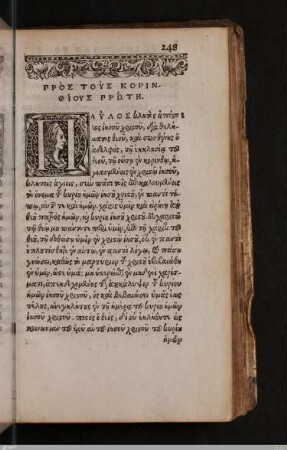 248
ΠΡΟΣ ΤΟΥΣ ΚΟΡΙΝ-
ΘΙΟΥΣ ΠΡΩΤΗ.
ΠΑΥΛΟΣ κλητὸς ἀπόστο
λος ἰησοῦ χριστοῦ, διὰ θελή-
ματος θεοῦ, καὶ σωσθένης ὁ
ἀδελφὸς, τῇ ἐκκλησίᾳ τοῦ
θεοῦ, τῇ οὔσῃ ἐν κορίνθῳ, ἡ-
γιασμένοις ἐν χριστῷ ἰησοῦ,
κλητοῖς ἁγίοις, σὺν πᾶσι τοῖς ἐπικαλουμένοις
τὸ ὄνομα τοῦ κυρίου ἡμῶν ἰησοῦ χριστοῦ, ἐν παντὶ τό-
πῳ, αὐτῶν τε καὶ ἡμῶν. χάρις ὑμῖν καὶ εἰρήνη ἀπὸ
θεοῦ πατρὸς ἡμῶν, καὶ κυρίου ἰησοῦ χριστοῦ. Εὐχαριστῶ
τῷ θεῷ μου πάντοτε περὶ ὑμῶν, ἐπὶ τῇ χάριτι τοῦ
θεοῦ, τῇ δοθείσῃ ὑμῖν ἐν χριστῷ ἰησοῦ, ὅτι ἐν παντὶ
ἐπλουτίσθητε ἐν αὐτῷ, ἐν παντὶ λόγῳ, καὶ πάσῃ
γνώσει, καθὼς τὸ μαρτύριον τοῦ χριστοῦ ἐβεβαιώθη
ἐν ὑμῖν, ὥστε ὑμᾶς μὴ ὑστερεῖσθαι ἐν μηδενὶ χαρίσ-
ματι, ἀπεκδεχομένους τὴν ἀποκάλυψιν τοῦ κυρίου
ἡμῶν ἰησοῦ χριστοῦ, ὃς καὶ βεβαιώσει ὑμᾶς ἕως
τέλους, ἀνεγκλήτους ἐν τῇ ἡμέρᾳ τοῦ κυρίου ἡμῶν
ἰησοῦ χριστοῦ. πιστὸς ὁ θεὸς, δι' οὗ ἐκλήθητε εἰς
κοινωνίαν τοῦ υἱοῦ αὐτοῦ ἰησοῦ χριστοῦ τοῦ κυρίου
ἡμῶν